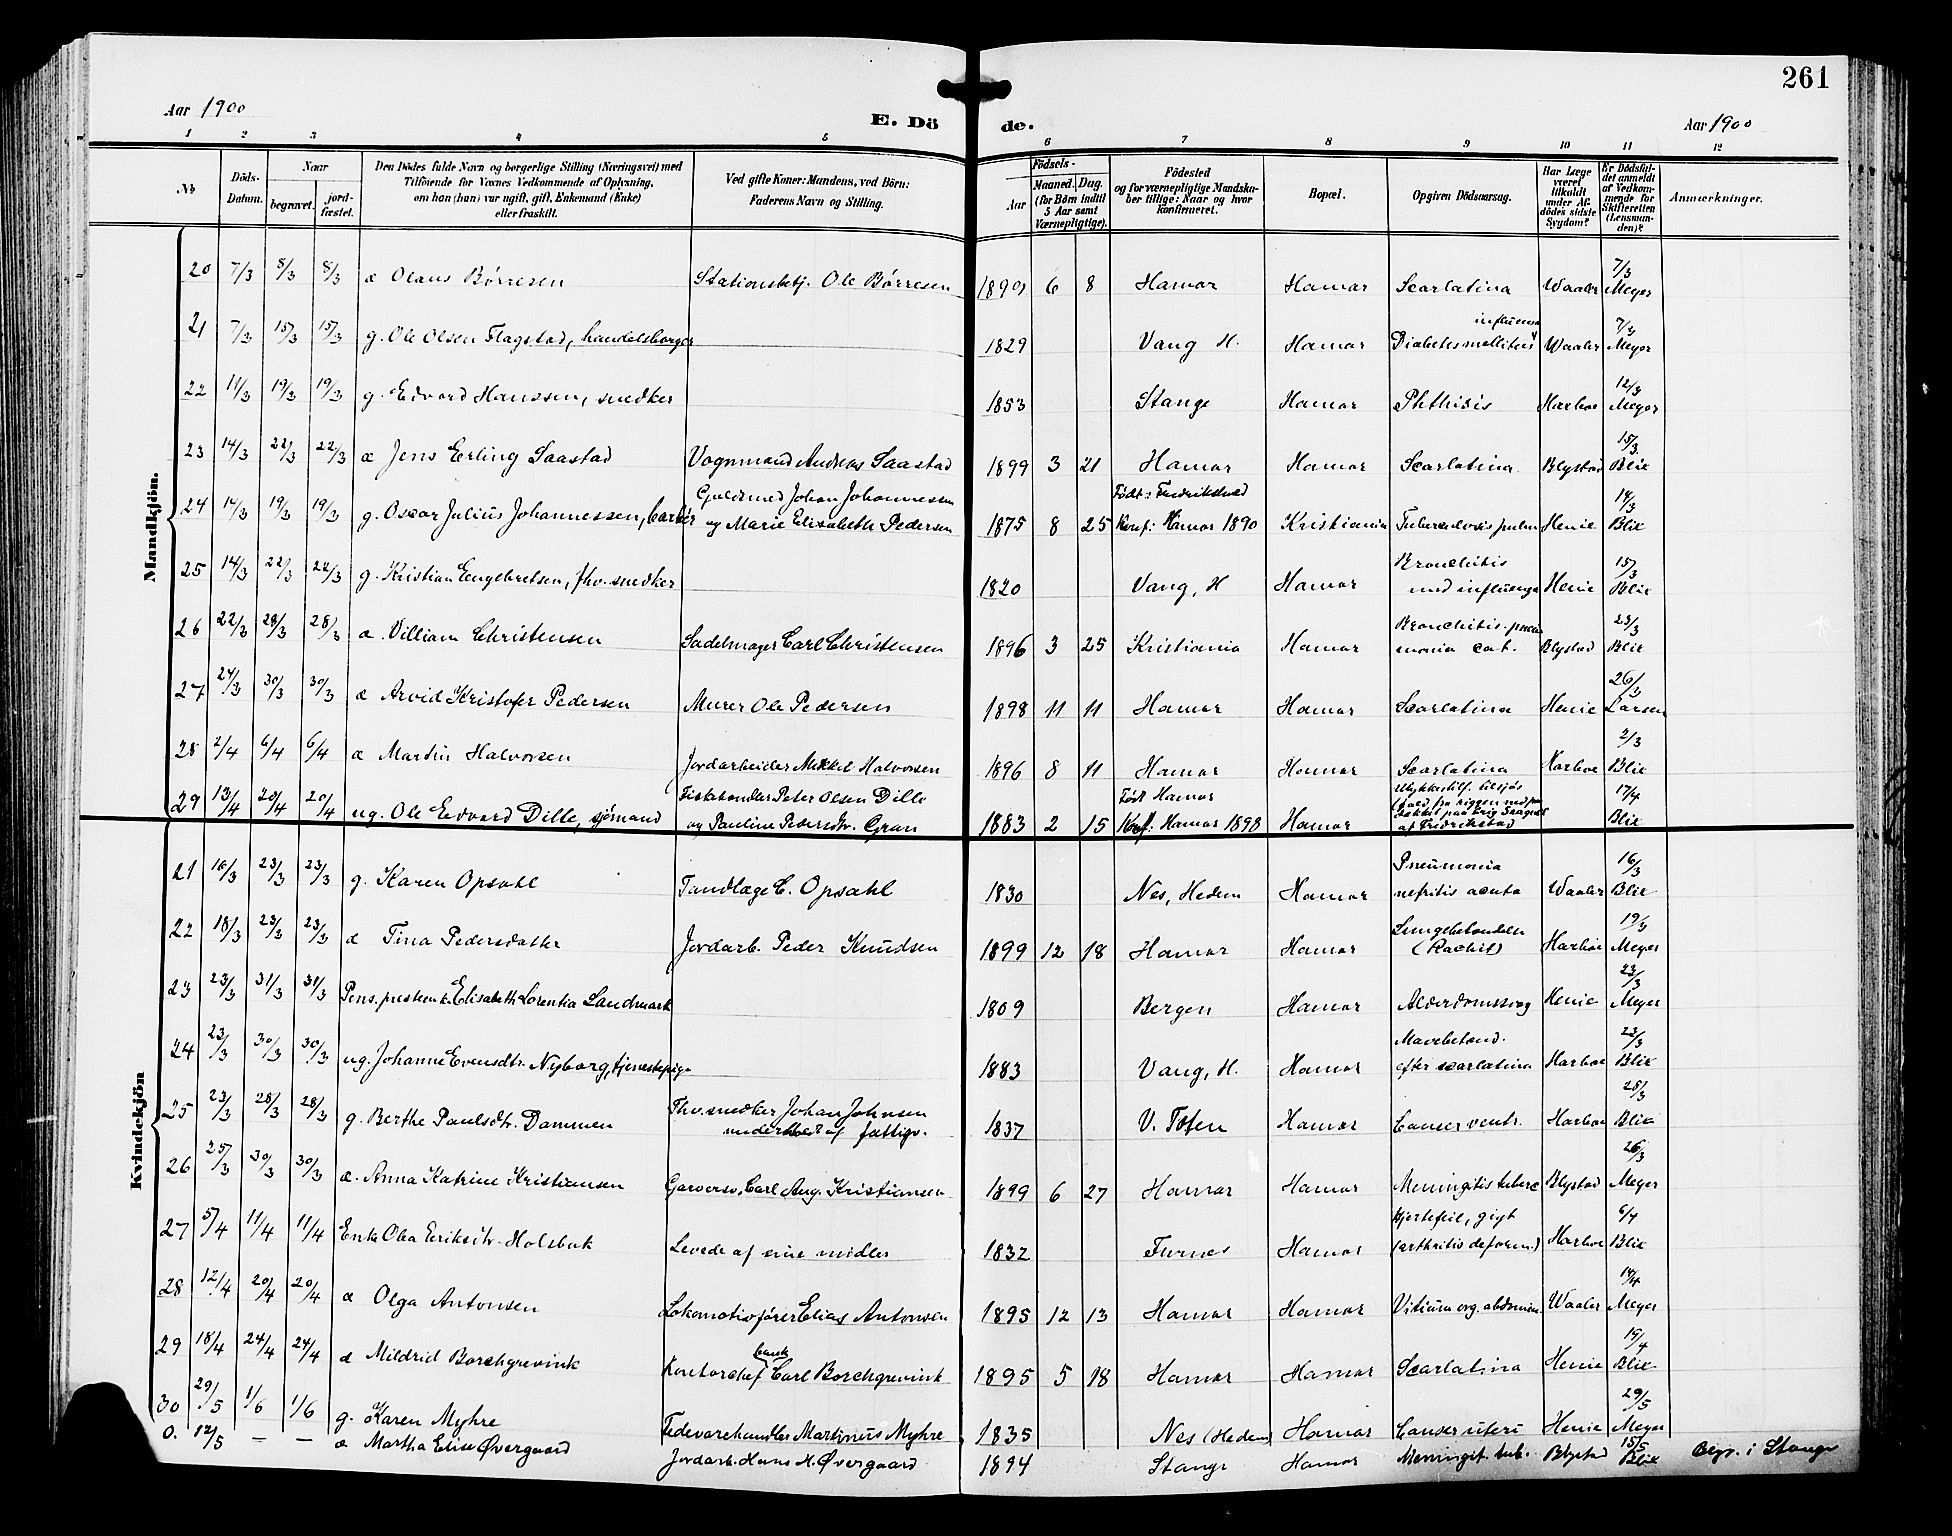 261
Aar 1900
E. Dö de.
Aar 1900
1 2 3 4 5 6 7 8 9 10 11 12
No
Döds-Datum.
Naar
begravet.
jord-fæstet.
Den Dödes fulde Navn og borgerlige Stilling (Næringsvei) med
Tilföiende for Voxnes Vedkommende af Oplysning,
om han (hun) var ugift, gift, Enkemand (Enke)
eller fraskilt.
Ved gifte Koner: Mandens, ved Börn:
Faderens Navn og Stilling.
Födsels-
Aar
Maaned. Dag.
(for Börn indtil
5 Aar samt
Værnepligtige).
Födested
og for værnepligtige Mandska-
ber tillige: Naar og hvor
konfirmeret.
Bopæl.
Opgiven Dödsaarsag.
Har Læge
været
tilkaldt
under Af-
dödes sidste
Sygdom?
Er Dödsfal-
det anmeldt
af Vedkom-
mende for
Skifteretten
(Lensman-
den)?
Anmærkninger.
Mandkjön.
20 7/3 8/3 8/3 æ Olaus Børresen Stationsbetj. Ole Børresen 1899 6 8 Hamar Hamar Scarlatina Waaler 7/3 Meyer
21 7/3 15/3 15/3 g. Ole Olsen Flagstad, handelsborger 1829 Vang H. Hamar Diabetes mellitus influensa Waaler 7/3 Meyer
22 11/3 19/3 19/3 g. Edvard Hanssen, snedker 1853 Stange Hamar Phthisis Harboe 12/3 Meyer
23 14/3 22/3 22/3 æ Jens Erling Saastad Vognmand Andreas Saastad 1899 3 21 Hamar Hamar Scarlatina Blystad 15/3 Blix
24 14/3 19/3 19/3 g. Oscar Julius Johannessen, barbér Guldsmed Johan Johannessen
og Marie Elisabeth Pedersen 1875 8 25 Født: Fredrikstad
Konf: Hamar 1890 Kristiania Tuberculosis pulm Henie 14/3 Blix
25 14/3 22/3 22/3 g. Kristian Engebretsen, fhv. snedker 1820 Vang, H Hamar Bronchitis
med influenza Henie 15/3 Blix
26 22/3 28/3 28/3 æ. Villiam Christensen Sadelmager Carl Christensen 1896 3 25 Kristiania Hamar Bronchitis. pneu
monia cat. Blystad 23/3 Blix
27 24/3 30/3 30/3 æ Arvid Kristofer Pedersen Murer Ole Pedersen 1898 11 11 Hamar Hamar Scarlatina Henie 26/3 Larsen
28 2/4 6/4 6/4 æ Martin Halvorsen Jordarbeider Mikkel Halvorsen 1896 8 11 Hamar Hamar Scarlatina Harboe 2/3 Blix
29 13/4 20/4 20/4 ug. Ole Edvard Dille, sjømand Fiskehandler Peter Olsen Dille
og Pauline Pedersdtr. Gran 1883 2 15 Født Hamar
Konf: Hamar 1898 Hamar Ulykkestilf. tilsjøs
(fald fra riggen ned paa
dækket paa brig
af Fredrikstad 17/4 Blix
Kvindekjön
21 16/3 23/3 23/3 g. Karen Opsahl Tandlæge C. Opsahl 1830 Nes, Hedem Hamar Pneumonia
nefritis acuta Waaler 16/3 Blix
22 18/3 23/3 23/3 æ Tina Pedersdatter Jordarb. Peder Knudsen 1899 12 18 Hamar Hamar Lungebetændelse
(Rachit) Harboe 19/3 Meyer
23 23/3 31/3 31/3 Pens. prestenk. Elisabeth Lorentia Landmark 1809 Bergen Hamar Alderdomssvag Henie 23/3 Meyer
24 23/3 30/3 30/3 ug. Johanne Evensdtr. Nyborg, tjenestepige 1883 Vang, H. Hamar Mavebetænd.
efter scarlatina Harboe 23/3 Blix
25 23/3 28/3 28/3 g. Berthe Paulsdtr. Dammen Fhv. snedker Johan Johnsen
underholdt af fattigv. 1837 V. Toten Hamar Cancer ventr. Harboe 28/3 Blix
26 25/3 30/3 30/3 æ. Anna Katrine Kristiansen Garversv. Carl Aug. Kristiansen 1899 6 27 Hamar Hamar Meningitis tuberc Blystad 26/3 Meyer
27 5/4 11/4 11/4 Enke Olea Eriksdtr. Holsbak Levede af sine midler 1832 Furnes Hamar Hjertefeil, gigt
(arthritis deform.) Harboe 6/4 Blix
28 12/4 20/4 20/4 æ Olga Antonsen Lokomotivfører Elias Antonsen 1895 12 13 Hamar Hamar Vitium org. abdomin. Waaler 14/4 Meyer
29 18/4 24/4 24/4 æ Mildrid Borchgrevink bank
Kontorchef Carl Borchgrevink 1895 5 18 Hamar Hamar Scarlatina Henie 19/4 Blix
30 29/5 1/6 1/6 g. Karen Myhre Fedevarehandler Martinus Myhre 1835 Nes (Hedem Hamar Cancer uteri Henie 29/5 Meyer
0. 12/5 — — æ Martha Elise Øvergaard Jordarb. Hans M. Øvergaard 1894 Stange Hamar Meningit. tub. Blystad 15/5 Blix Begr. i Stange